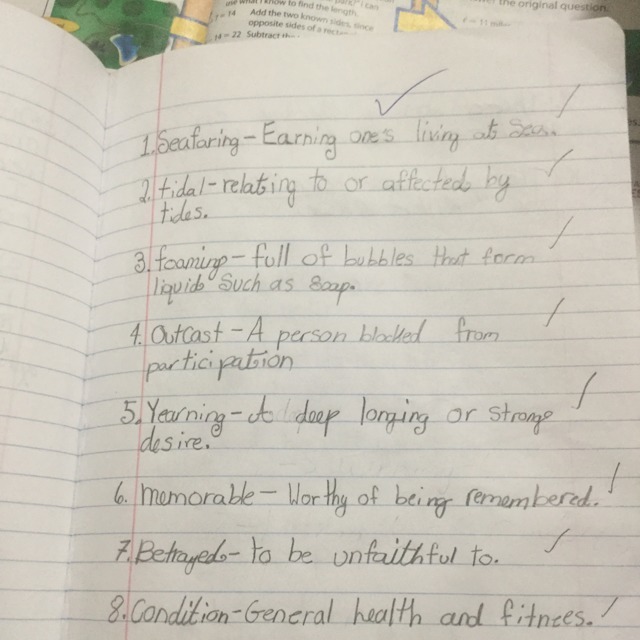 know to find the length.
the original question.
Add the two known sides, since
opposite sides of a
14 = 22 Subtract
1. Seafaring - Earning one's living at Sea.
2. tidal - relating to or affected by
tides.
3. foaming - full of bubbles that form
liquid Such as Soap.
4. Outcast - A person blocked from
participation
5. Yearning - A deep longing or strong
desire.
6. memorable - Worthy of being remembered.
7. Betrayed - to be unfaithful to.
8. Condition - General health and fitnees.